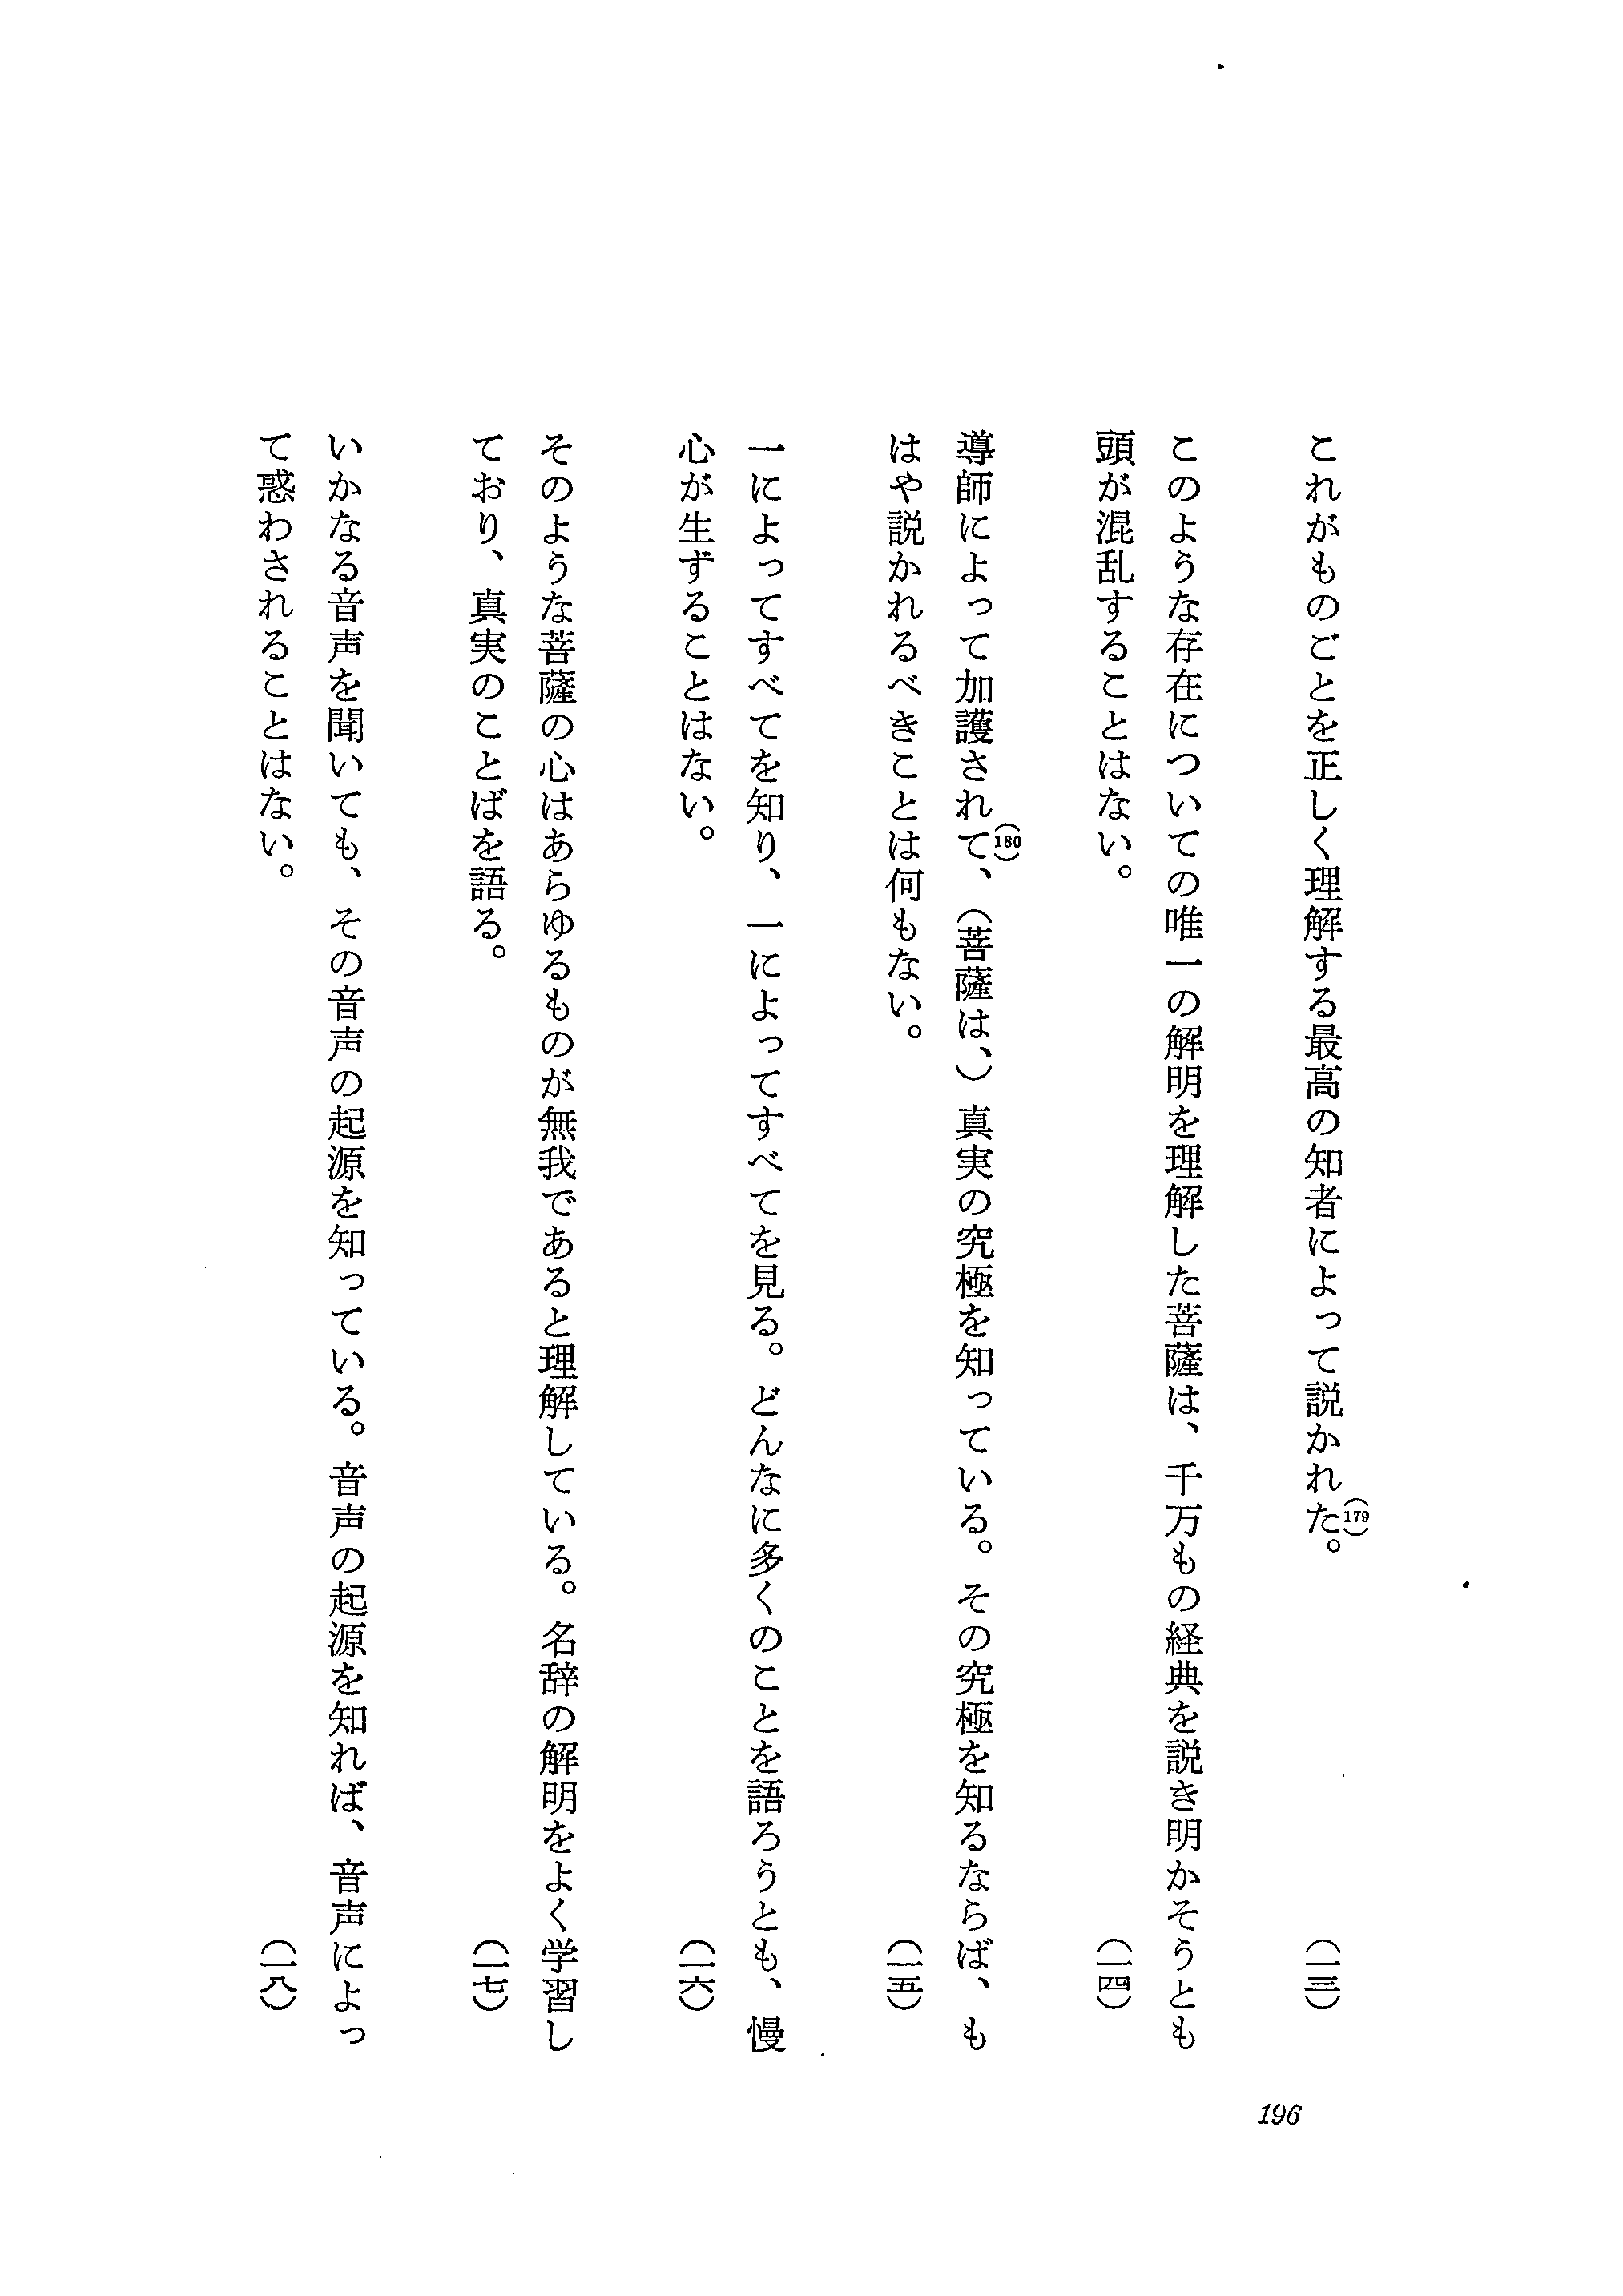 これがものごとを正しく理解する最高の知者によって説かれた(179)。 (一三)
このような存在についての唯一の解明を理解した菩薩は、千万もの経典を説き明かそうとも
頭が混乱することはない。 (一四)
導師によって加護されて(180)、(菩薩は、)真実の究極を知っている。その究極を知るならば、も
はや説かれるべきことは何もない。 (一五)
一によってすべてを知り、一によってすべてを見る。どんなに多くのことを語ろうとも、慢
心が生ずることはない。 (一六)
そのような菩薩の心はあらゆるものが無我であると理解している。名辞の解明をよく学習し
ており、真実のことばを語る。 (一七)
いかなる音声を聞いても、その音声の起源を知っている。音声の起源を知れば、音声によっ
て惑わされることはない。 (一八)
196